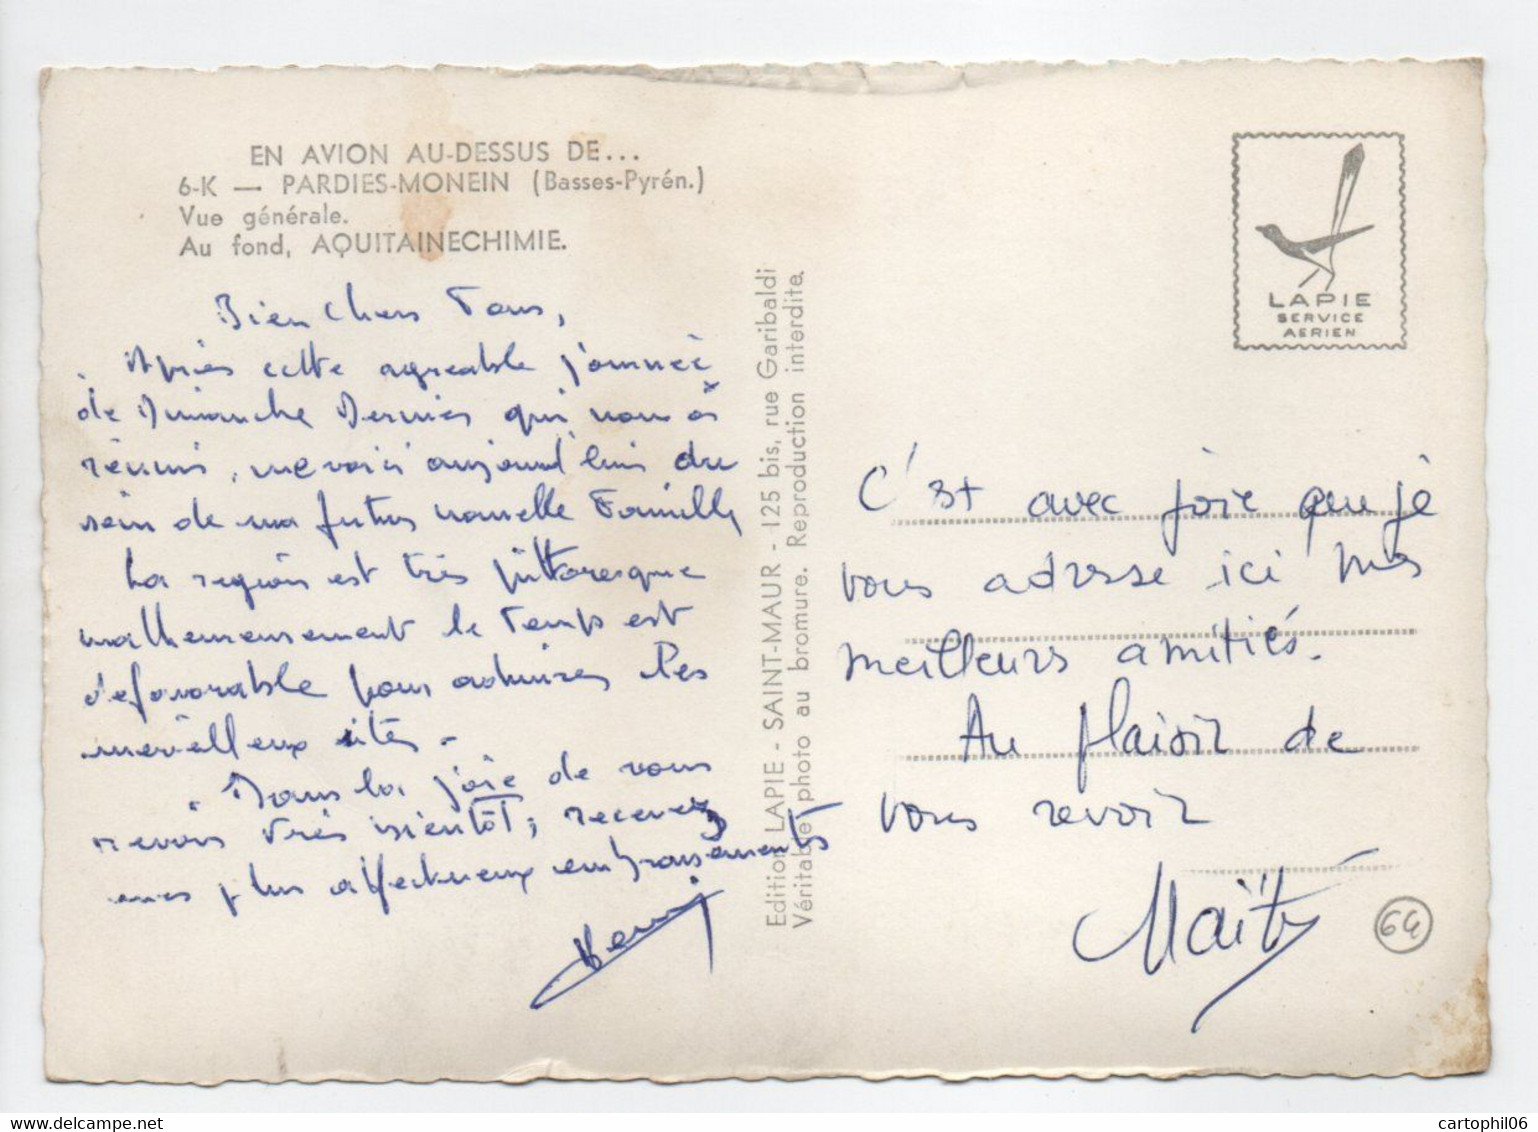 EN AVION AU-DESSUS DE...
6-K — PARDIES-MONEIN (Basses-Pyrén.)
Vue générale.
Au fond, AQUITAINECHIMIE.
Bien Chers Tous,
Après cette agreable journée
de Dimanche Dernier qui nous à
réunis, me voici aujourd'hui du
sein de ma future nouvelle Famille
La region est très pittoresque
malheureusement le Temps est
défavorable pour admirer les
merveilleux sites.
Dans la joie de vous
revoir très bientôt; recevez
mes plus affectueux embrassements
Henri
Edition LAPIE - SAINT-MAUR - 125 bis, rue Garibaldi
Véritable photo au bromure. Reproduction interdite.
LAPIE
SERVICE
AERIEN
C'est avec joie que je
vous adresse ici mes
meilleurs amitiés.
Au plaisir de
vous revoir
Maïté
64
cartophil06